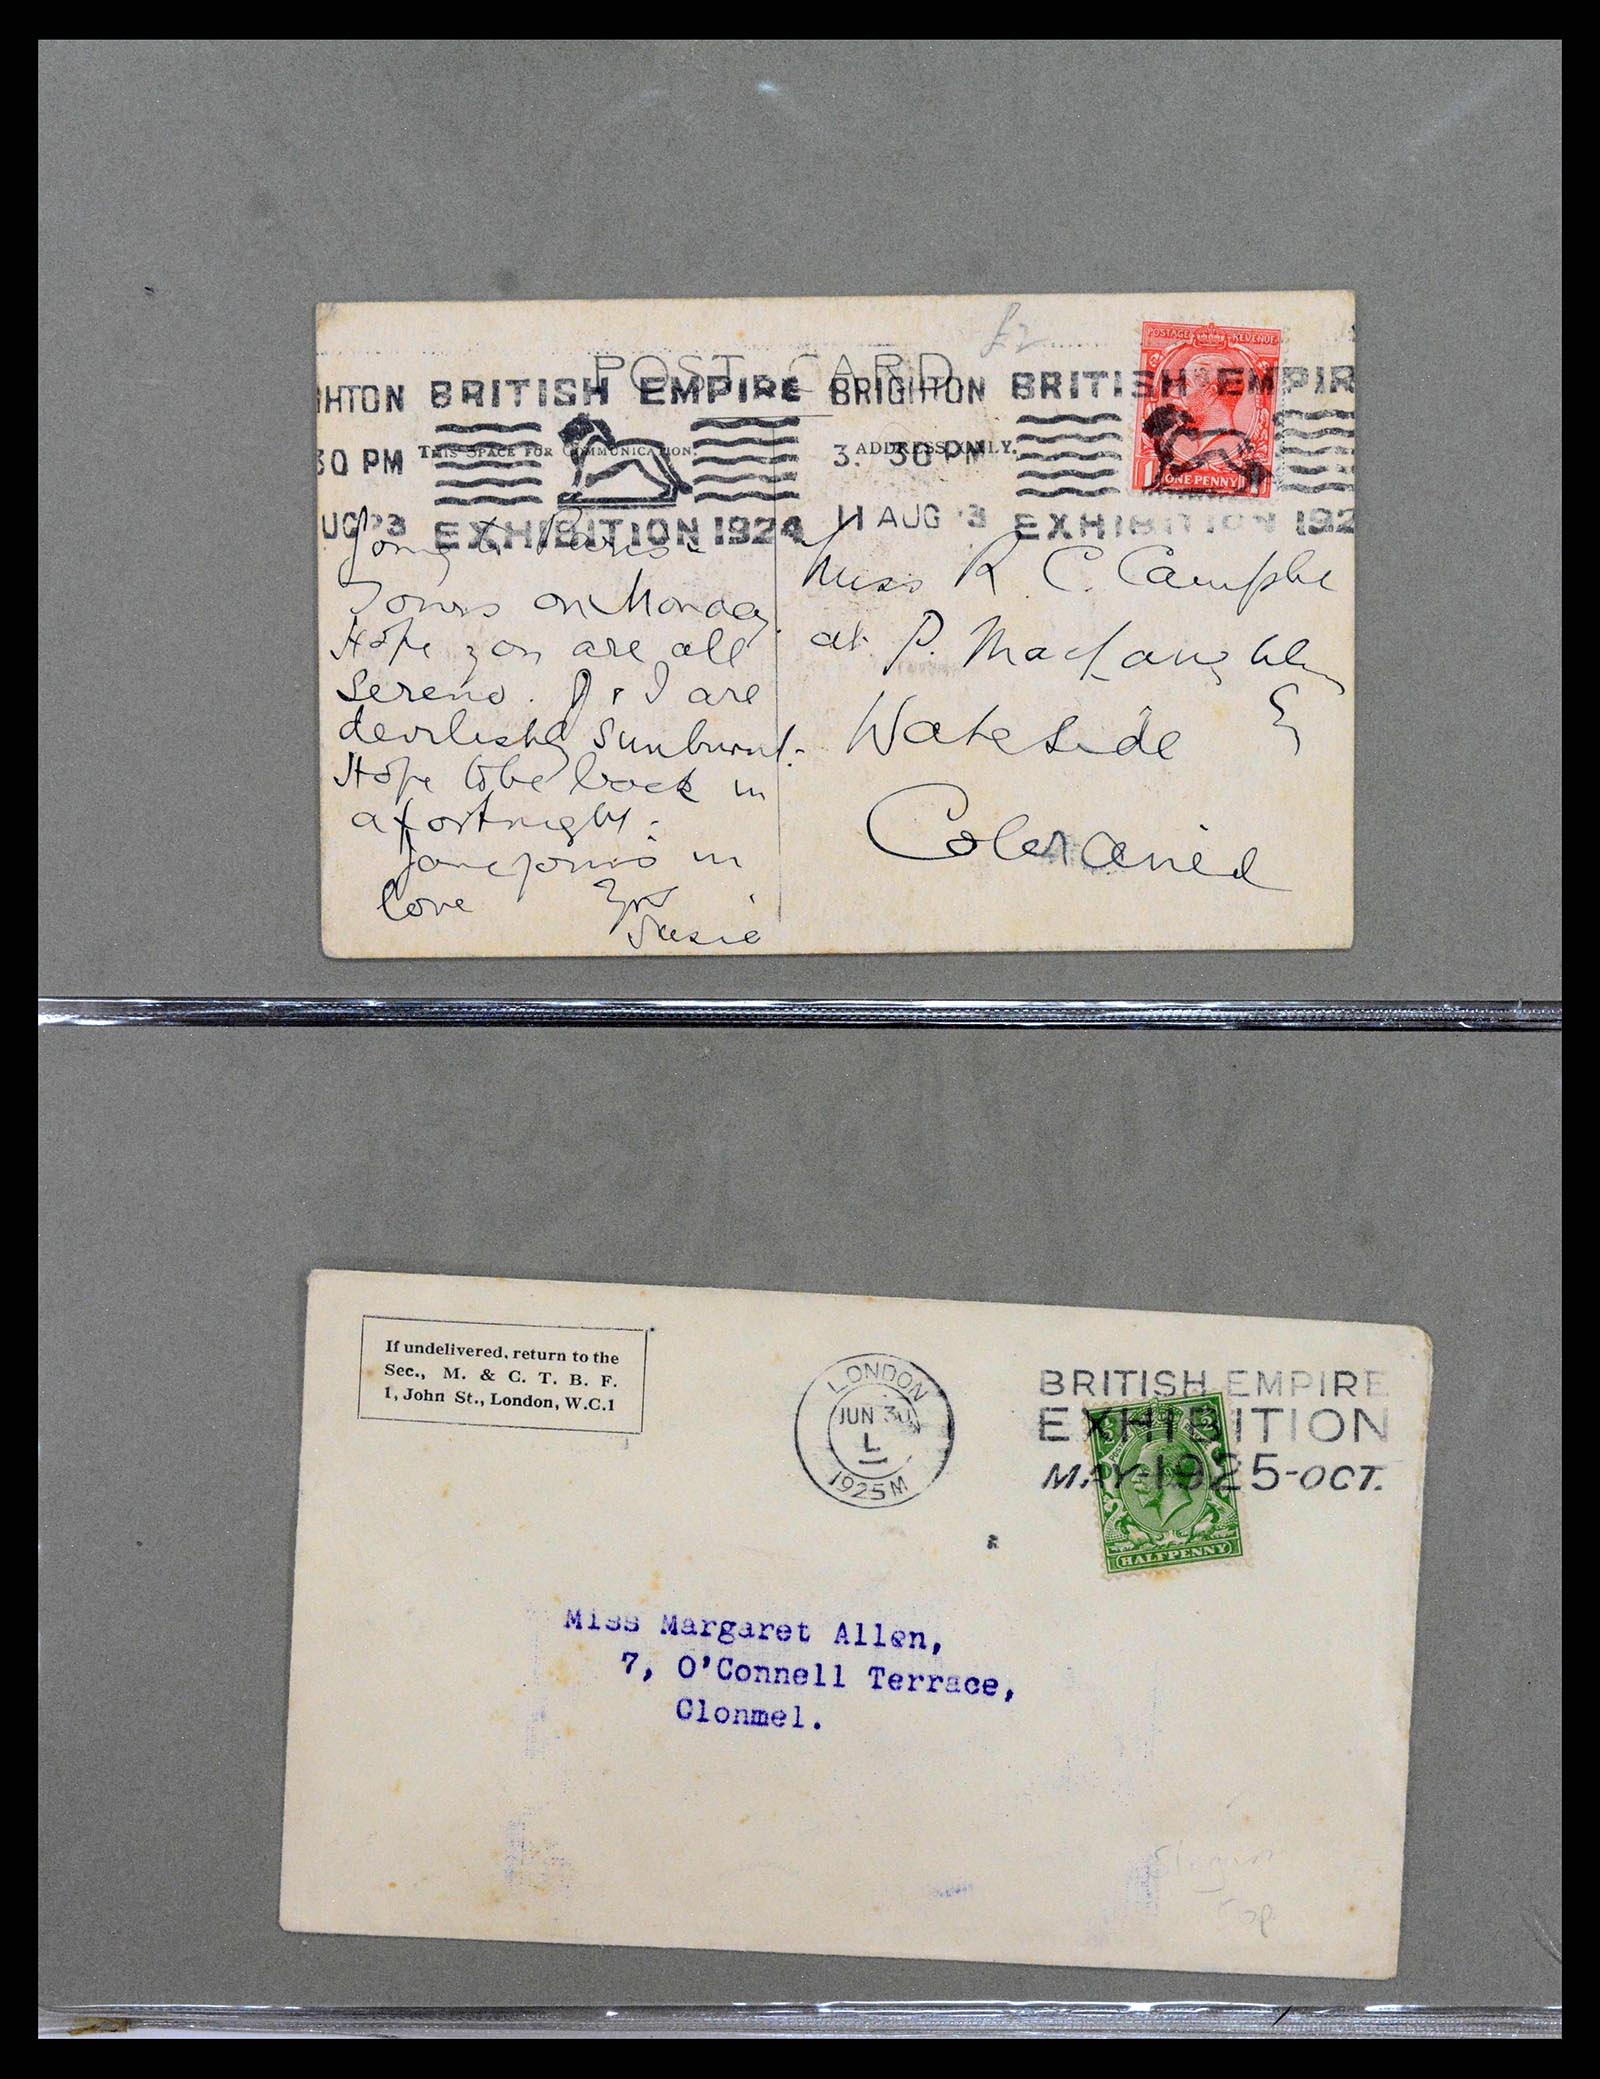 £2
POST CARD
HTON BRITISH EMPIRE BRIGHTON BRITISH EMPIR
POSTAGE REVENUE
THIS SPACE FOR COMMUNICATION.
ADDRESS ONLY.
30 PM
3. 30 PM
ONE PENNY
UG 23 EXHIBITION 1924
11 AUG 23 EXHIBITION 192
on Monday
Hope you are all
sereno. & I are
devilishly sunburnt.
Hope to be back in
a fortnight.
in
love Yrs
Susie
Miss R. C. Campbe
at P. MacLaughlin
Waterside
Coleraine
If undelivered, return to the
Sec., M. & C. T. B. F.
1, John St., London, W.C.1
LONDON
JUN 30
L
1925 M
BRITISH EMPIRE
EXHIBITION
MAY-1925-OCT.
HALFPENNY
Miss Margaret Allen,
7, O'Connell Terrace,
Clonmel.